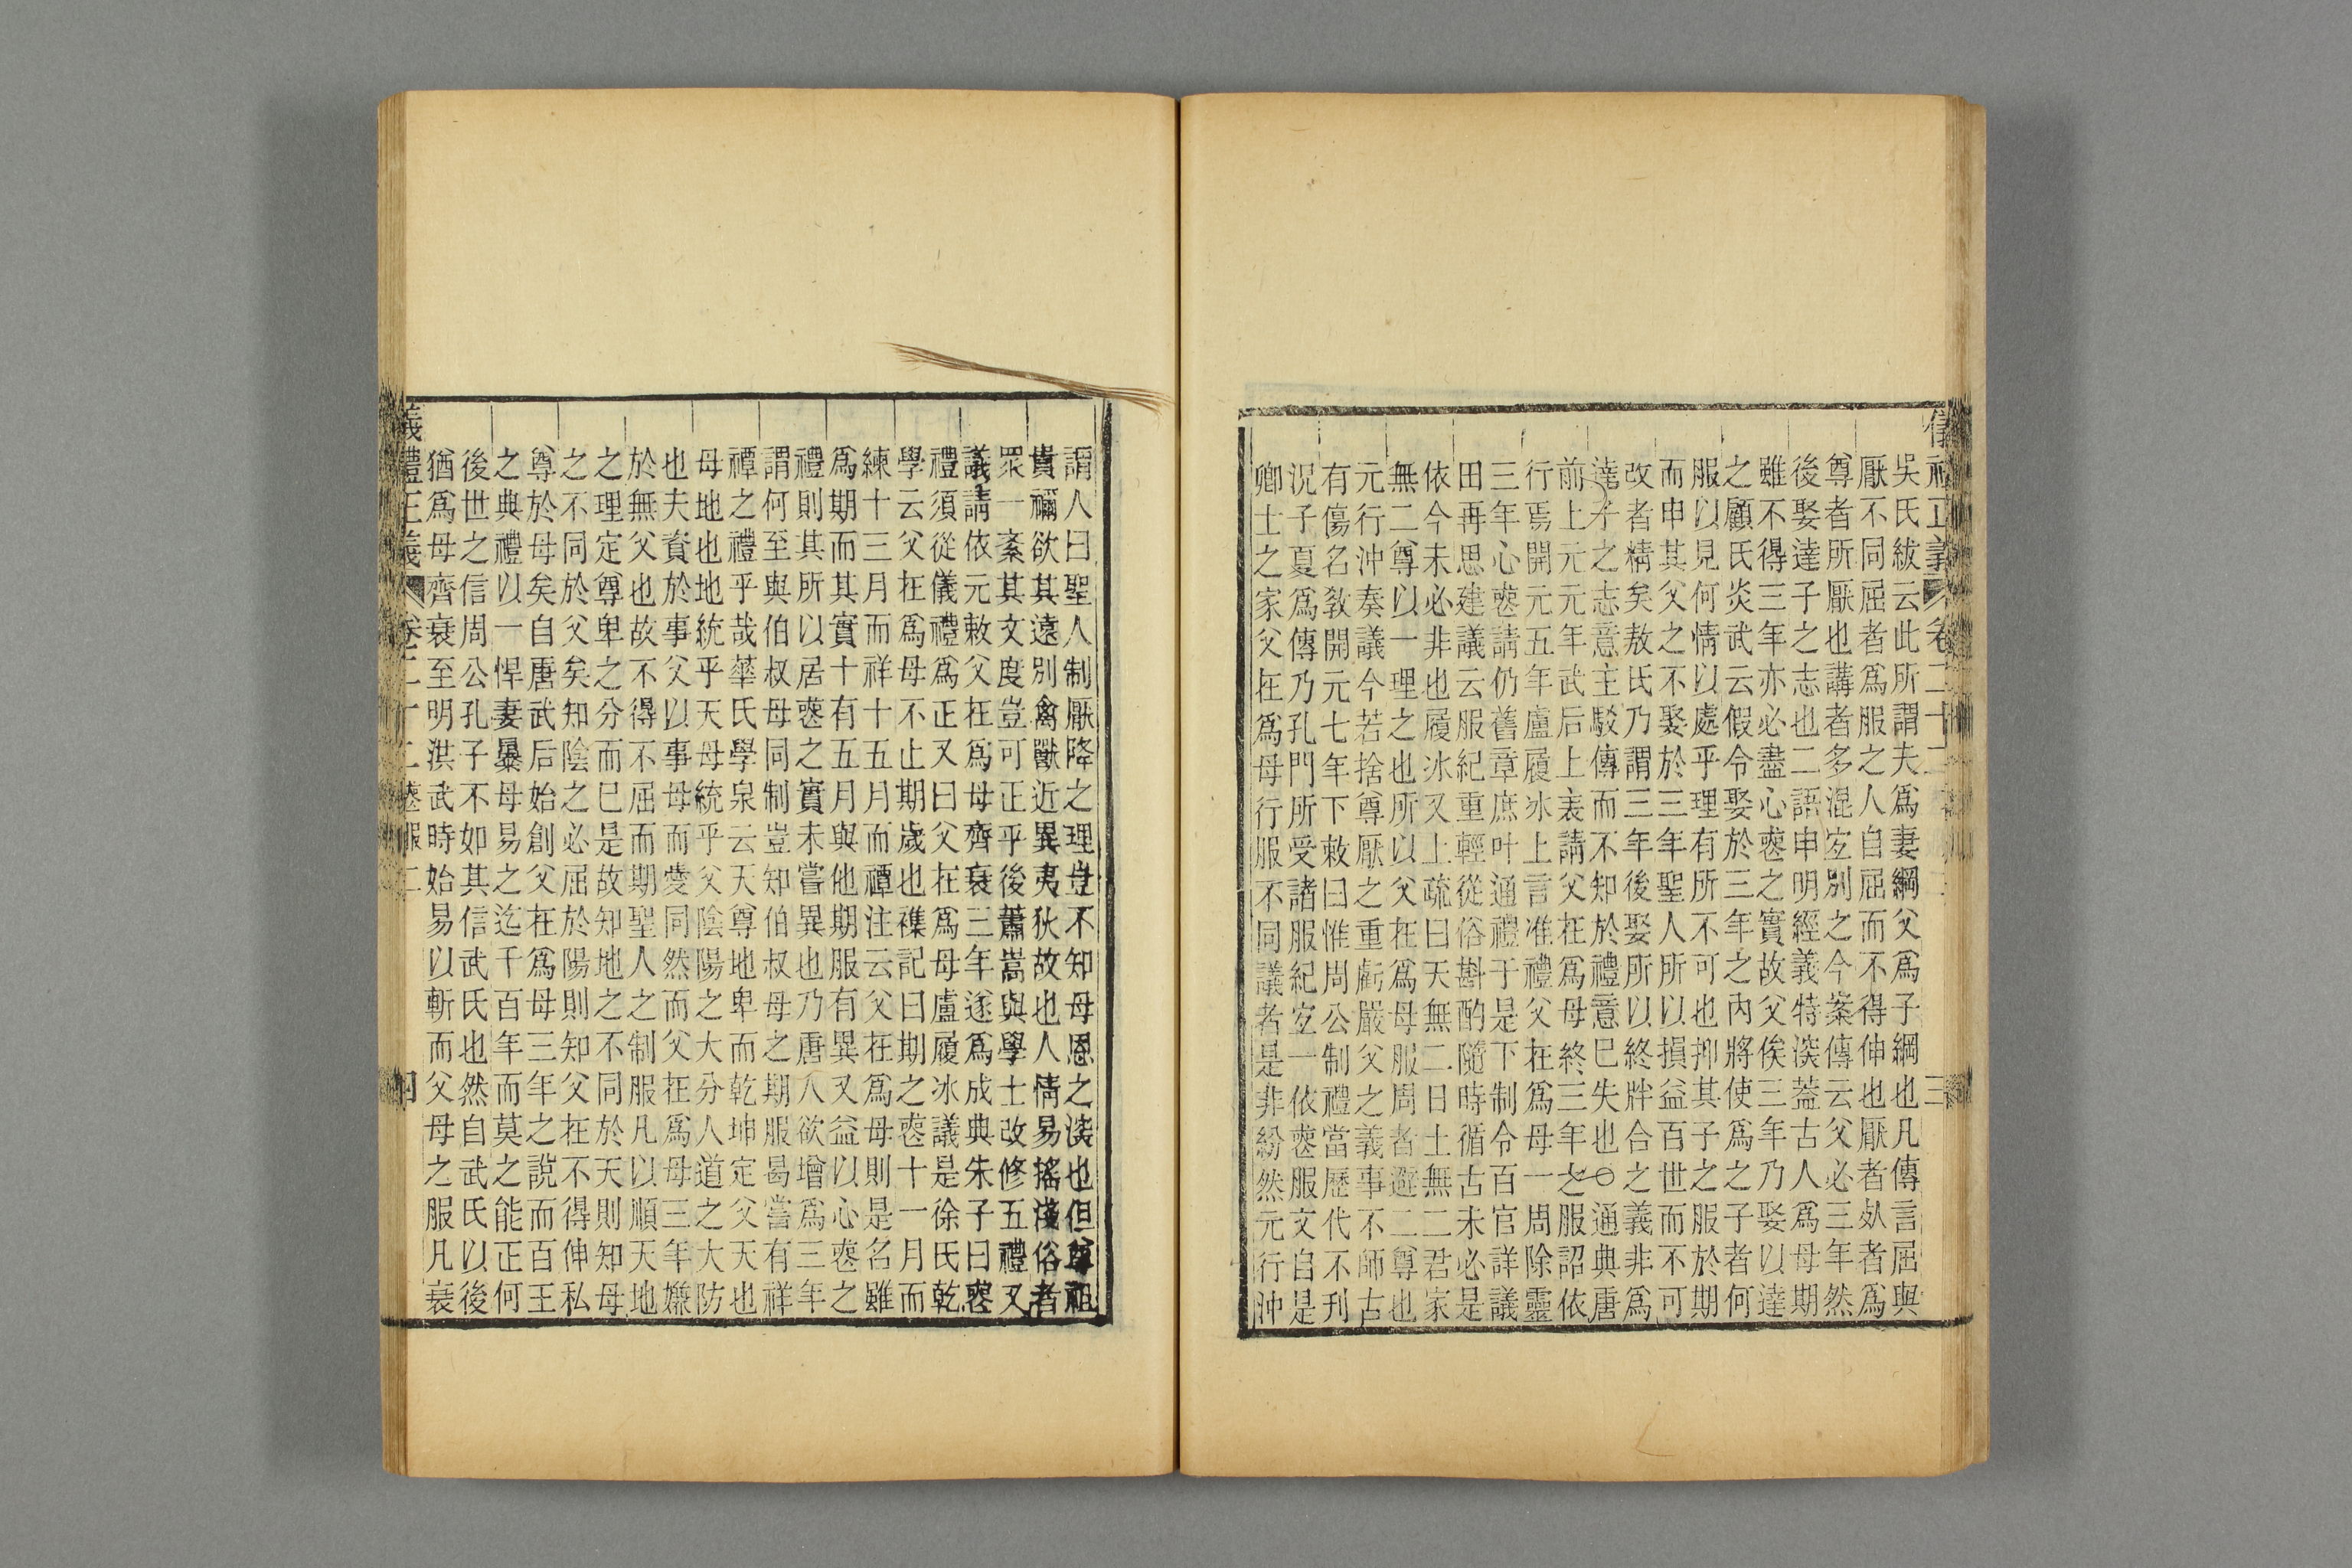 儀禮正義 卷二十二 三
吳氏紱云此所謂夫爲妻綱父爲子綱也凡傳言屈與
厭不同屈者爲服之人自屈而不得伸也厭者死者爲
尊者所厭也講者多混宐別之今案傳云父必三年然
後娶達子之志也二語申明經義特深葢古人爲母期
雖不得三年亦必盡心喪之實故父俟三年乃娶以達
之顧氏炎武云假令娶於三年之內將使爲之子者何
服以見何情以處乎理有所不可也抑其子之服於期
而申其父之不娶於三年聖人所以損益百世而不可
改者精矣敖氏乃謂三年後娶所以終牉合之義非爲
達子之志意主駁傳而不知於禮意已失也○通典唐
前上元元年武后上表請父在爲母終三年之服詔依
行焉開元五年盧履冰上言准禮父在爲母一周除靈
三年心喪請仍舊章庶叶通禮于是下制令百官詳議
田再思建議云服紀重輕從俗斟酌隨時循古未必是
依今未必非也履冰又上疏曰天無二日土無二君家
無二尊以一理之也所以父在爲母服周者避二尊也
元行沖奏議今若捨尊厭之重虧嚴父之義事不師古
有傷名敎開元七年下敕曰惟周公制禮當歷代不刊
況子夏爲傳乃孔門所受諸服紀宐一依喪服文自是
卿士之家父在爲母行服不同議者是非紛然元行沖
謂人曰聖人制厭降之理豈不知母恩之深也但尊祖
貴禰欲其遠別禽獸近異夷狄故也人情易搖淺俗者
眾一紊其文度豈可正乎後蕭嵩與學士改修五禮又
議請依元敕父在爲母齊衰三年遂爲成典朱子曰喪
禮須從儀禮爲正又曰父在爲母盧履冰議是徐氏乾
學云父在爲母不止期歲也襍記曰期之喪十一月而
練十三月而祥十五月而禫注云父在爲母則是名雖
爲期而其實十有五月與他期服有異又益以心喪之
禮則其所以居喪之實未嘗異也乃唐人欲增爲三年
謂何至與伯叔母同制豈知伯叔母之期服曷嘗有祥
禫之禮乎哉華氏學泉云天尊地卑而乾坤定父天也
母地也地統乎天母統乎父陰陽之大分人道之大防
也夫資於事父以事母而愛同然而父在爲母三年嫌
於無父也故不得不屈而期聖人之制服凡以順天地
之理定尊卑之分而已是故知地之不同於天則知母
之不同於父矣知陰之必屈於陽則知父在不得伸私
尊於母矣自唐武后始創父在爲母三年之說而百王
之典禮以一悍妻暴母易之迄千百年而莫之能正何
後世之信周公孔子不如其信武氏也然自武氏以後
猶爲母齊衰至明洪武時始易以斬而父母之服凡衰
儀禮正義 卷二十二 喪服二 四